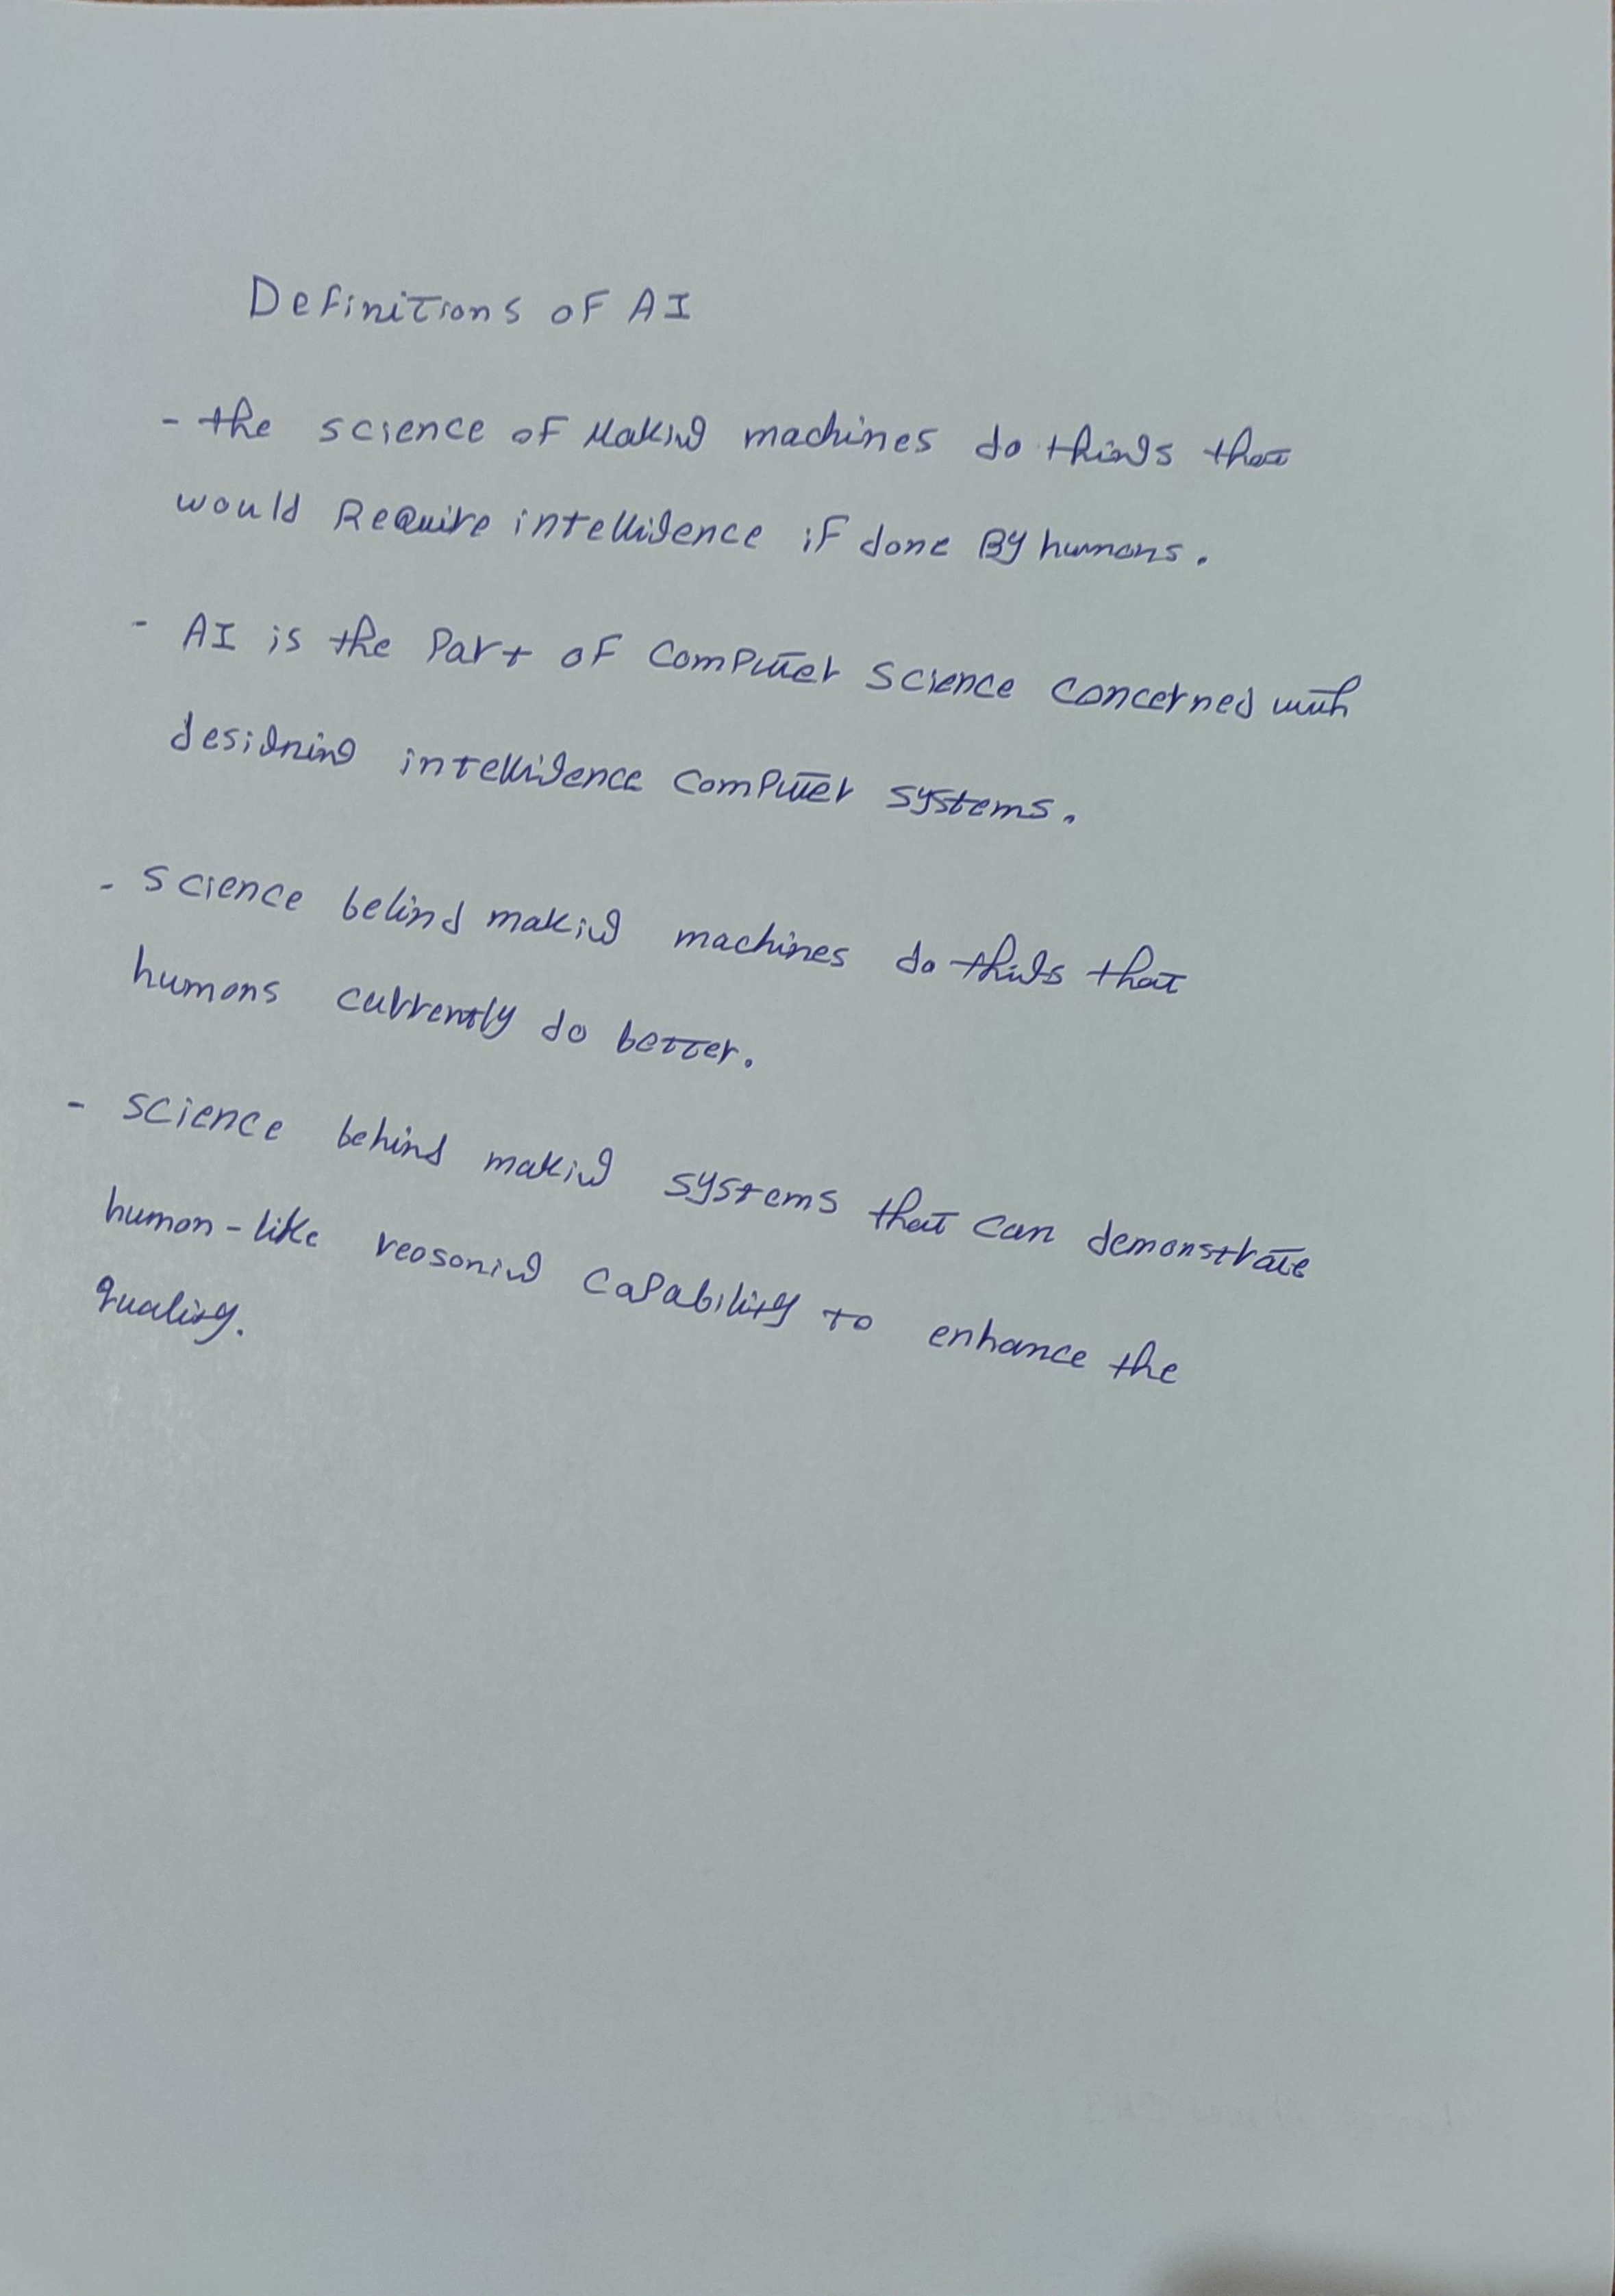 Definitions of AI
- the science of Making machines do things that
would Require intelligence if done By humans.
- AI is the Part of Computer Science Concerned with
designing intelligence Computer systems.
- science behind making machines do things that
humans currently do better.
- science behind making systems that can demonstrate
human-like reasoning capability to enhance the
quality.